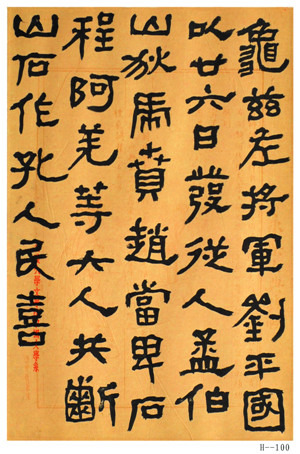 龜茲左將軍劉平國
以廿六日發從人孟伯
山狄虎賁趙當卑石
程阿羌等六人共斷
山石作孔人民喜
H--100